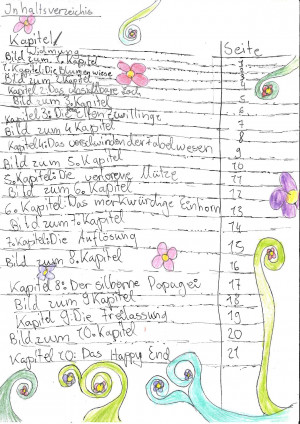 Inhaltsverzeichis
Kapitel/ Seite
Widmung
Bild zum 1. Kapitel
1. Kapitel: Die Blumenwiese
Bild zum 2. Kapitel
Kapitel 2: Das unsichtbare Loch
Bild zum 3. Kapitel
Kapitel 3: Die Elfenzwillinge
Bild zum 4. Kapitel 8
Kapitel 4: Das verschwinden der Fabelwesen 9
Bild zum 5. Kapitel 10
5. Kapitel: Die verlorene Mütze 11
Bild zum 6. Kapitel 12
6. Kapitel: Das merkwürdige Einhorn 13
Bild zum 7. Kapitel 14
7. Kapitel: Die Auflösung 15
Bild zum 8. Kapitel 16
Kapitel 8: Der silberne Papagei 17
Bild zum 9. Kapitel 18
Kapitel 9: Die Freilassung 19
Bild zum 10. Kapitel 20
Kapitel 10: Das Happy End 21